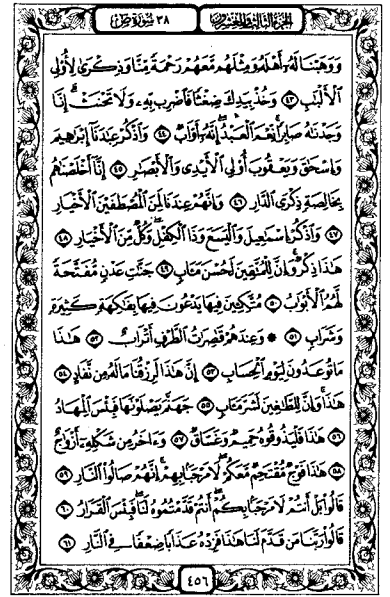 الجزء الثالث والعشرون
٣٨ سورة ص
وَوَهَبْنَا لَهُۥٓ أَهْلَهُۥ وَمِثْلَهُم مَّعَهُمْ رَحْمَةً مِّنَّا وَذِكْرَىٰ لِأُو۟لِى
ٱلْأَلْبَٰبِ ٤٣ وَخُذْ بِيَدِكَ ضِغْثًا فَٱضْرِب بِّهِۦ وَلَا تَحْنَثْ إِنَّا
وَجَدْنَٰهُ صَابِرًا نِّعْمَ ٱلْعَبْدُ إِنَّهُۥٓ أَوَّابٌ ٤٤ وَٱذْكُرْ عِبَٰدَنَآ إِبْرَٰهِيمَ
وَإِسْحَٰقَ وَيَعْقُوبَ أُو۟لِى ٱلْأَيْدِى وَٱلْأَبْصَٰرِ ٤٥ إِنَّآ أَخْلَصْنَٰهُم
بِخَالِصَةٍ ذِكْرَى ٱلدَّارِ ٤٦ وَإِنَّهُمْ عِندَنَا لَمِنَ ٱلْمُصْطَفَيْنَ ٱلْأَخْيَارِ
٤٧ وَٱذْكُرْ إِسْمَٰعِيلَ وَٱلْيَسَعَ وَذَا ٱلْكِفْلِ وَكُلٌّ مِّنَ ٱلْأَخْيَارِ ٤٨
هَٰذَا ذِكْرٌ وَإِنَّ لِلْمُتَّقِينَ لَحُسْنَ مَـَٔابٍ ٤٩ جَنَّٰتِ عَدْنٍ مُّفَتَّحَةً
لَّهُمُ ٱلْأَبْوَٰبُ ٥٠ مُتَّكِـِٔينَ فِيهَا يَدْعُونَ فِيهَا بِفَٰكِهَةٍ كَثِيرَةٍ
وَشَرَابٍ ٥١ ۞ وَعِندَهُمْ قَٰصِرَٰتُ ٱلطَّرْفِ أَتْرَابٌ ٥٢ هَٰذَا
مَا تُوعَدُونَ لِيَوْمِ ٱلْحِسَابِ ٥٣ إِنَّ هَٰذَا لَرِزْقُنَا مَا لَهُۥ مِن نَّفَادٍ ٥٤
هَٰذَا وَإِنَّ لِلطَّٰغِينَ لَشَرَّ مَـَٔابٍ ٥٥ جَهَنَّمَ يَصْلَوْنَهَا فَبِئْسَ ٱلْمِهَادُ
٥٦ هَٰذَا فَلْيَذُوقُوهُ حَمِيمٌ وَغَسَّاقٌ ٥٧ وَءَاخَرُ مِن شَكْلِهِۦٓ أَزْوَٰجٌ
٥٨ هَٰذَا فَوْجٌ مُّقْتَحِمٌ مَّعَكُمْ لَا مَرْحَبًۢا بِهِمْ إِنَّهُمْ صَالُوا۟ ٱلنَّارِ ٥٩
قَالُوا۟ بَلْ أَنتُمْ لَا مَرْحَبًۢا بِكُمْ أَنتُمْ قَدَّمْتُمُوهُ لَنَا فَبِئْسَ ٱلْقَرَارُ ٦٠
قَالُوا۟ رَبَّنَا مَن قَدَّمَ لَنَا هَٰذَا فَزِدْهُ عَذَابًا ضِعْفًا فِى ٱلنَّارِ ٦١
٤٥٦